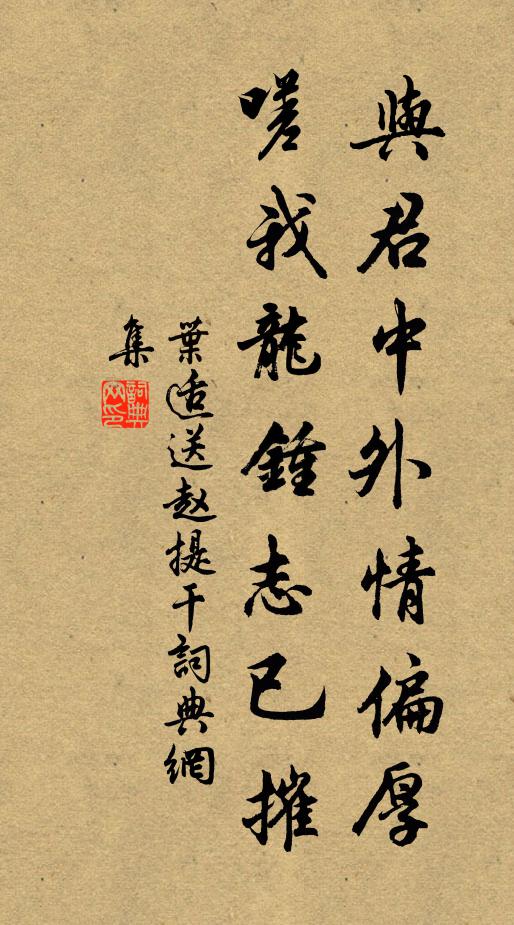 與君中外情偏厚
嗟我龍鍾志已摧
葉适送赵提干詞典網
集
詞典網印